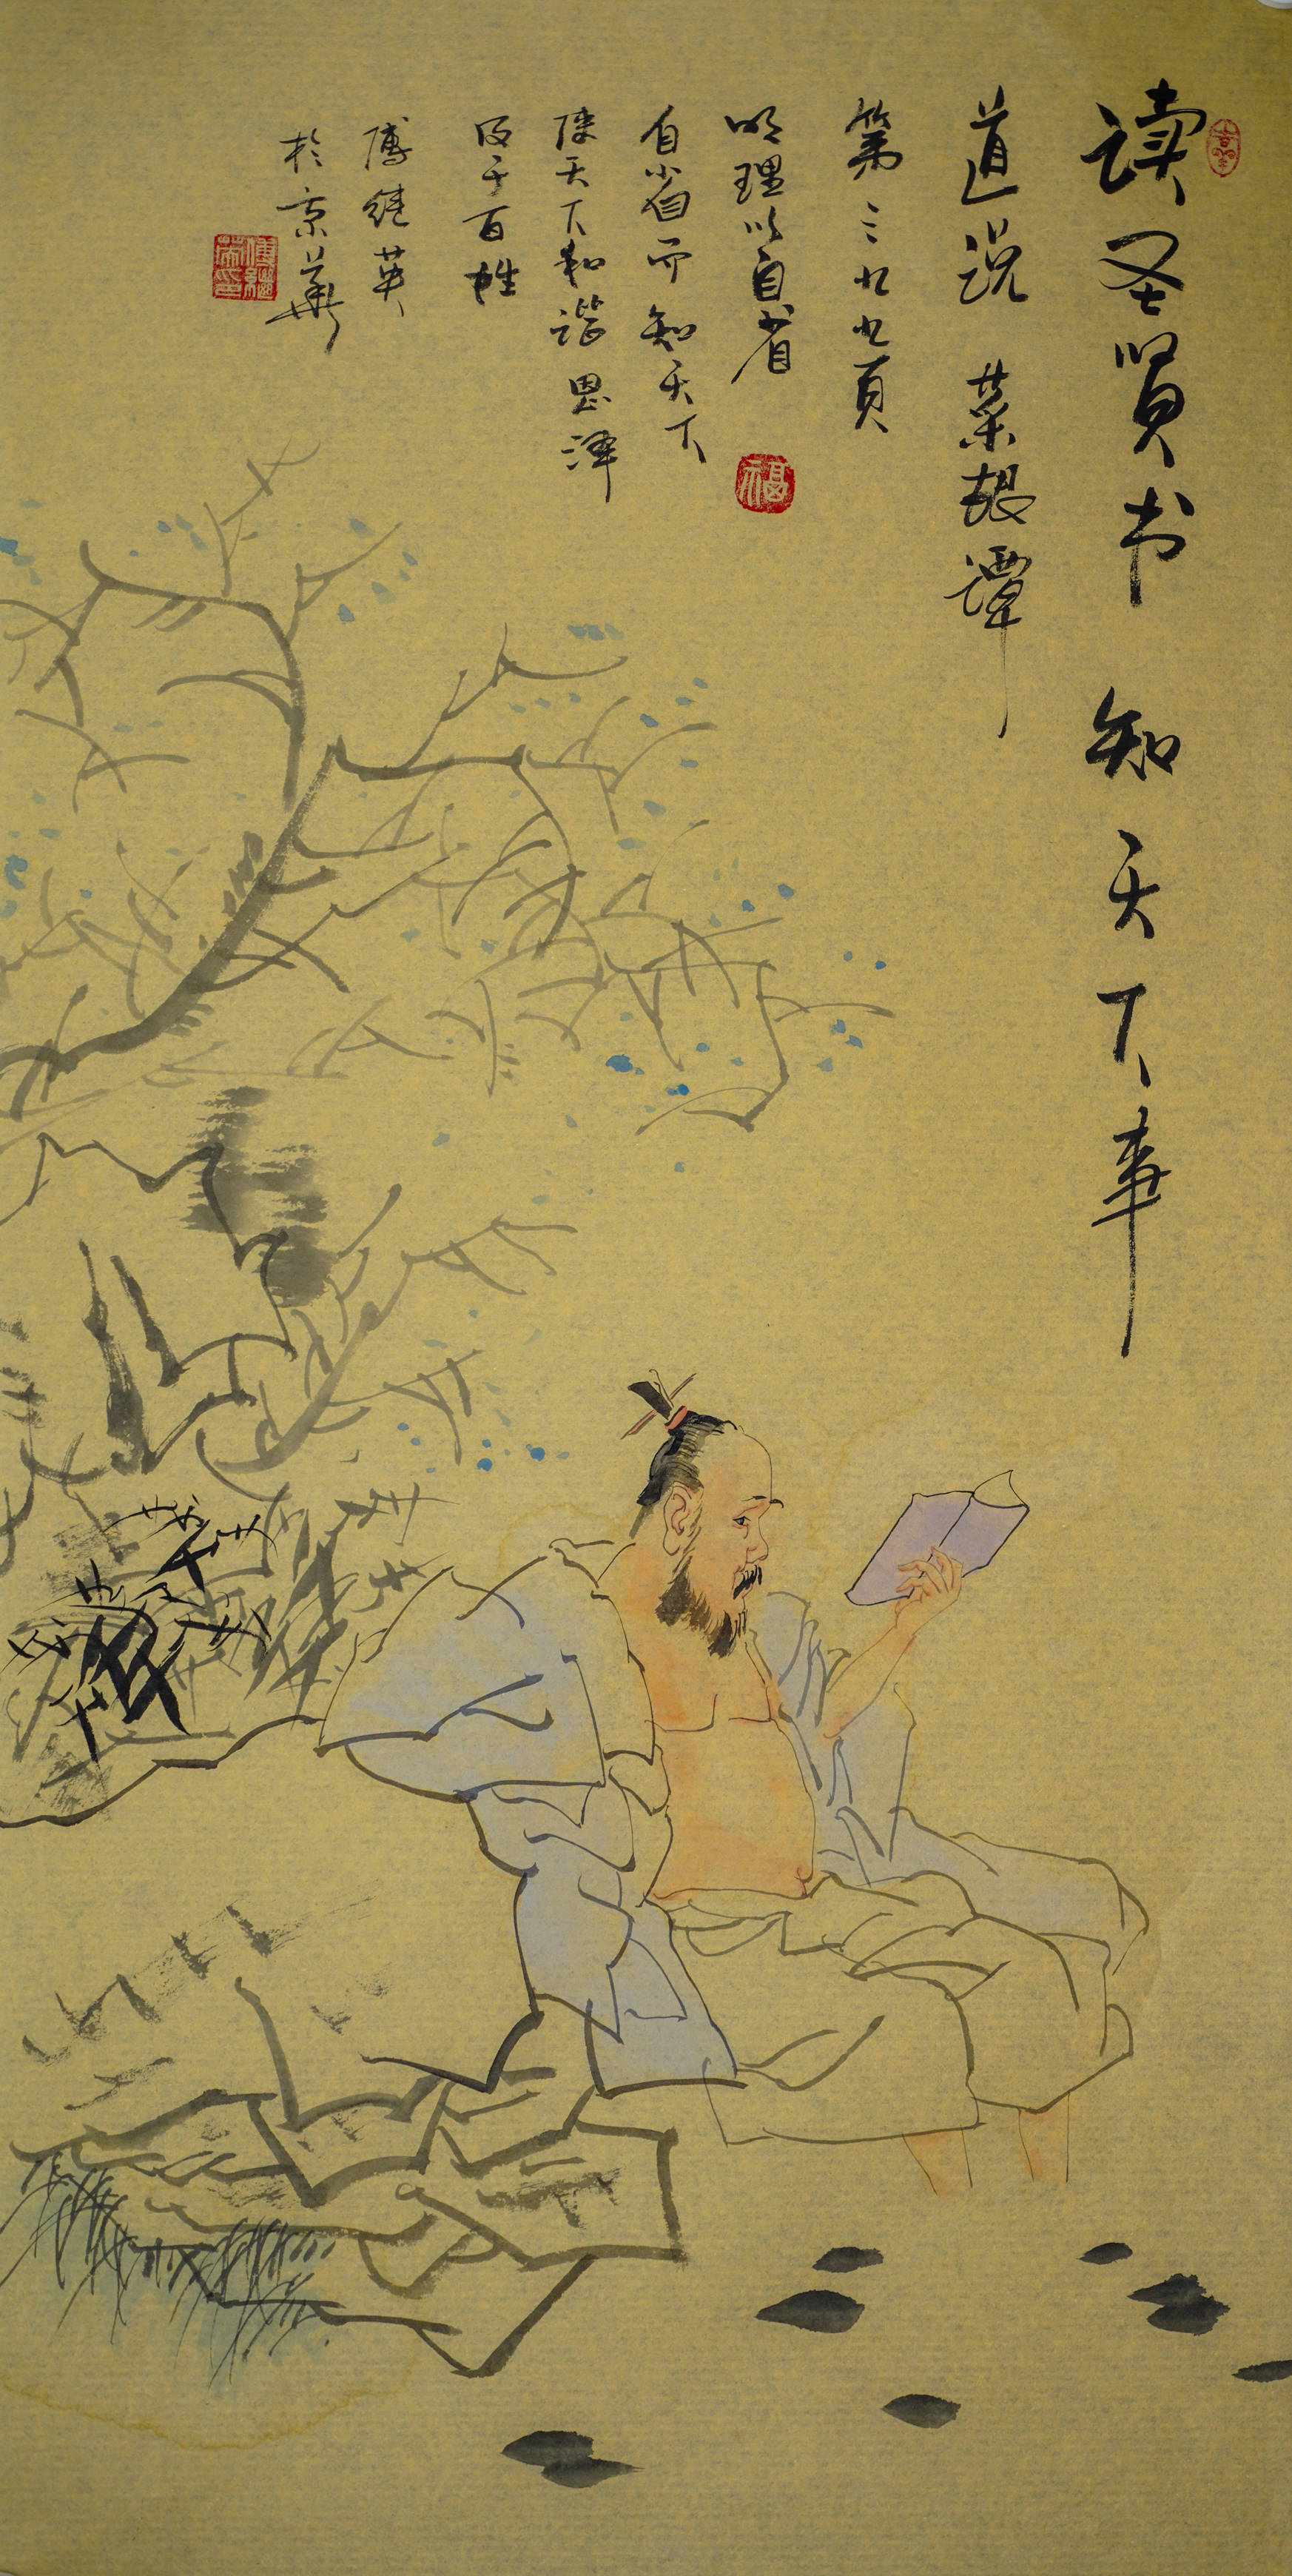 读圣贤书 知天下事
道说 菜根谭
第三九九頁
明理以自省
自省而知天下
使天下和谐恩泽
及于百姓
傅继英
於京華
福